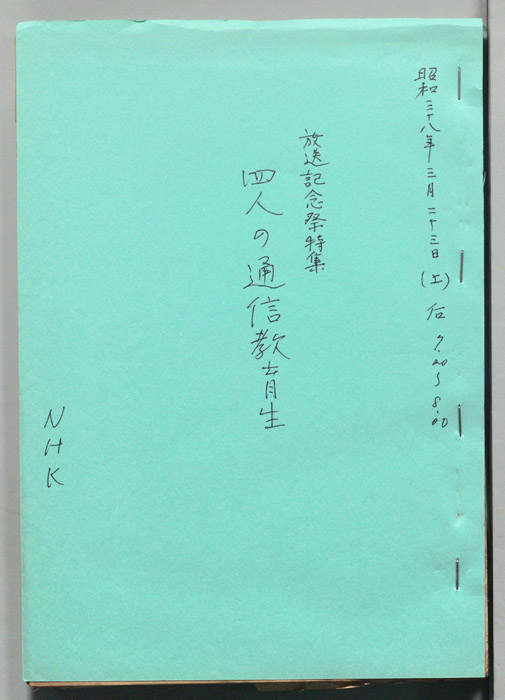 昭和三十八年三月二十三日(土)后7.20〜8.00
放送記念祭特集
四人の通信教育生
NHK